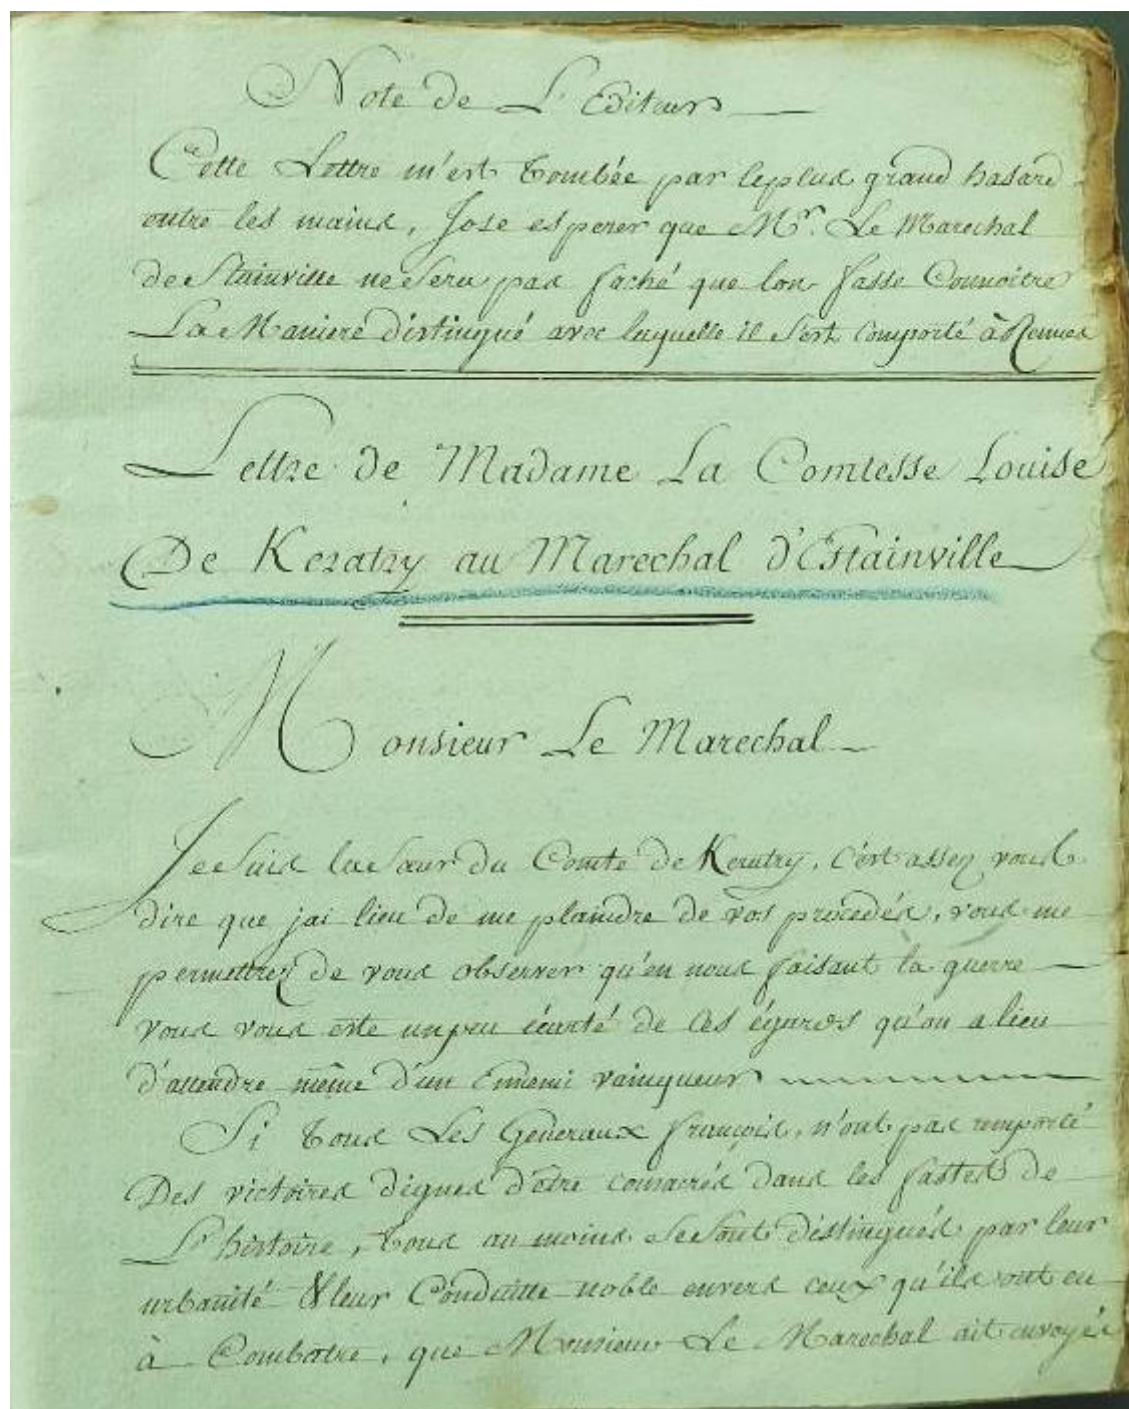 Note de L'Editeur
Cette Lettre m'est tombée par le plus grand hasard
entre les mains, J'ose esperer que Mr. Le Marechal
de Stainville ne sera pas faché que lon fasse Connoitre
La Maniere distingué avec laquelle il s'est comporté à Rennes
Lettre de Madame La Comtesse Louise
De Keratry au Marechal d'Estainville
Monsieur Le Marechal
Je suis la sœur du Comte de Keratry, c'est assez vous
dire que jai lieu de me plaindre de vos procedés, vous me
permettrez de vous observer qu'en nous faisant la guerre
vous vous este un peu écarté de ces égards qu'on a lieu
d'attendre même d'un Ennemi vainqueur
Si tous Les Generaux françois, n'ont pas remporté
Des victoires dignes d'être consacrés dans les fastes de
L'histoire, tous au moins se sont distingués par leur
urbanité & leur Conduitte noble envers ceux qu'ils ont eu
à Combatre, que Monsieur Le Marechal ait envoyée